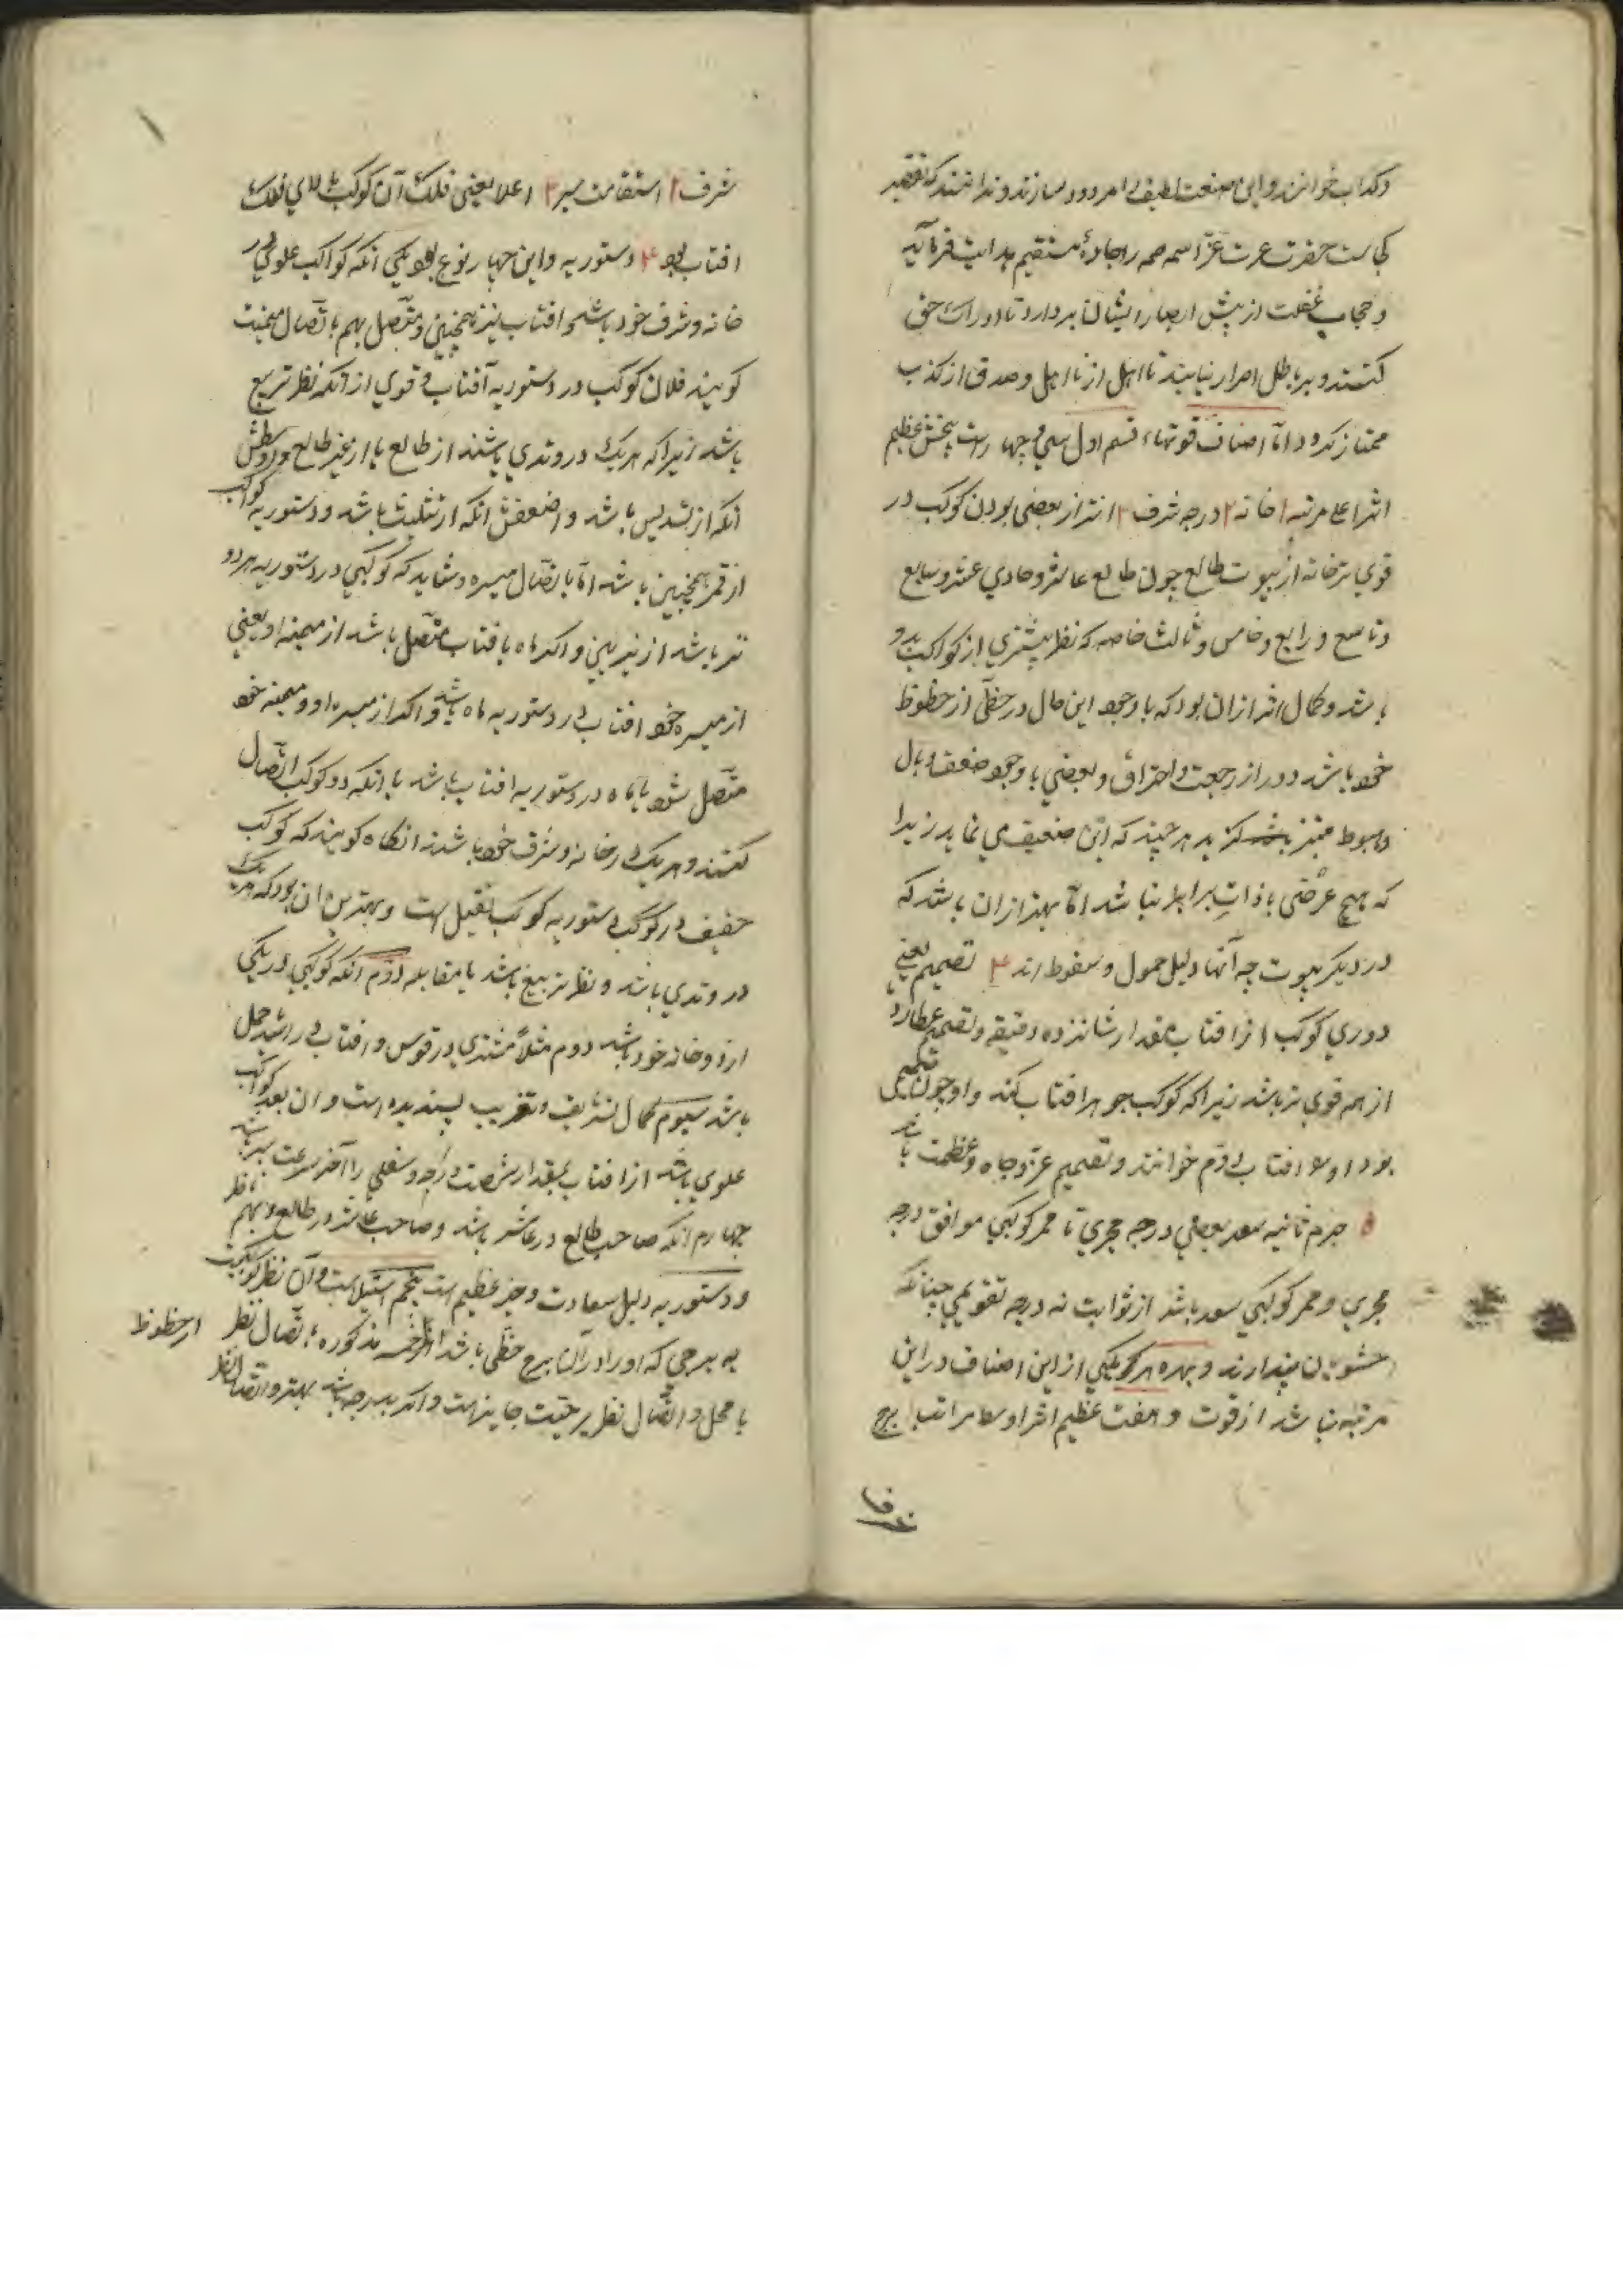 و کذاب خوانند و این صنعت لطیف را مردود سازند و ندانند که تقصیر
کجاست حضرت عزت عزّ اسمه همه را بجادهٔ مستقیم هدایت فرماید
و حجاب غفلت از پیش ابصار ایشان بردارد تا ادراک حق
کنند و بر باطل اصرار ننمایند تا اهل از نا اهل و صدق از کذب
ممتاز گردد امّا اصناف قوتها قسم اول سی و چهار است پنج عظیم
اثر اعلی مرتبه ۱ خانه ۲ درجه شرف ۳ یعنی بودن کوکب در
قوی تر خانه از بیوت طالع چون طالع عاشر و حادی عشر و سابع
و تاسع و رابع و خامس و ثالث خاصه که نظر بیشتری از کواکب بدو
باشد و کمال اثر از آن بود که با وجود این حال در حظّی از حظوظ
خود باشد دور از رجعت و احتراق و بعضی با وجود ضعف وبال
و هبوط هر چند که این ضعیف می نماید زیرا
که هیچ عرضی با ذات برابر نباشد امّا بهتر از آن باشد که
در دیگر بیوت چه آنها دلیل خمول و سقوط اند ۴ تصمیم یعنی
دوری کوکب از افتاب بمقدار شانزده دقیقه و تصمیم عطارد
از همه قوی تر باشد زیرا که کوکب جوهر افتاب کند و او چون
بود او را افتاب دوم خوانند و تصمیم عزّ و جاه و عظمت باشد
۵ جرم ثانیه سعد یعنی درجه مجری تا ممر کوکبی موافق درجه
مجری و ممر کوکبی سعد باشد از ثوابت نه درجه تقویمی چنانکه
حشویان پندارند و بهره هر یکی از این اصناف در این
مرتبه باشد از قوت و هفت عظیم اثر اوسط مراتب ۱ برج
شرف ۲ استقامت سیر ۳ اعلا یعنی فلک آن کوکب بالای فلک
افتاب بود ۴ دستوریه و این چهار نوع بود یکی انکه کواکب علوی در
خانه و شرف خود باشد و افتاب نیز همچنین و متصل بهم باتصال میمنت
کویند فلان کوکب در دستوریه آفتاب و قوی از آنکه نظر تربیع
باشد زیرا که هر یک در وتدی باشند از طالع یا از غیر طالع و وسطش
آنکه از تسدیس باشد و اضعفش آنکه از تثلیث باشد و دستوریه کواکب
از قمر همچنین باشد امّا باتصال میسره و شاید که کوکبی در دستوریه هر دو
نیّر باشد از نیّرین و اکر ماه بافتاب متصل باشد از میمنه او یعنی
از میسره خود افتاب در دستوریه ماه باشد و اکر از میسره او و میمنه خود
متصل شود ماه در دستوریه افتاب باشد یا انکه دو کوکب اتصال
کنند و هر یک در خانه و شرف خود باشند انکاه کویند که کوکب
خفیف در دستوریه کوکب ثقیل است و بهترین آن بود که هر یک
در وتدی باشند و نظر تربیع باشد یا مقابله دوّم انکه کوکبی در یکی
از دو خانه خود باشد دوم مثلاً مشتری در قوس و افتاب در اسد حمل
باشد سیوم کمال تشریق و تغریب پسندیده است و آن بعد کواکب
علوی باشد از افتاب بمقدار شصت درجه و سفلی را آخر سرعت سیر باشد
چهارم انکه صاحب طالع در عاشر باشد و صاحب عاشر در طالع و بهم ناظر
و دستوریه دلیل سعادت و چیز عظیم است پنجم استیلاست و آن نظر کوکبیست
به برجی که او را در آن برج حظّی باشد از خمسه مذکوره باتصال نظر از حظوظ
با محل و اتصال نظر جایز است و اکر بدرجه باشد بهتر و اتصال نظر